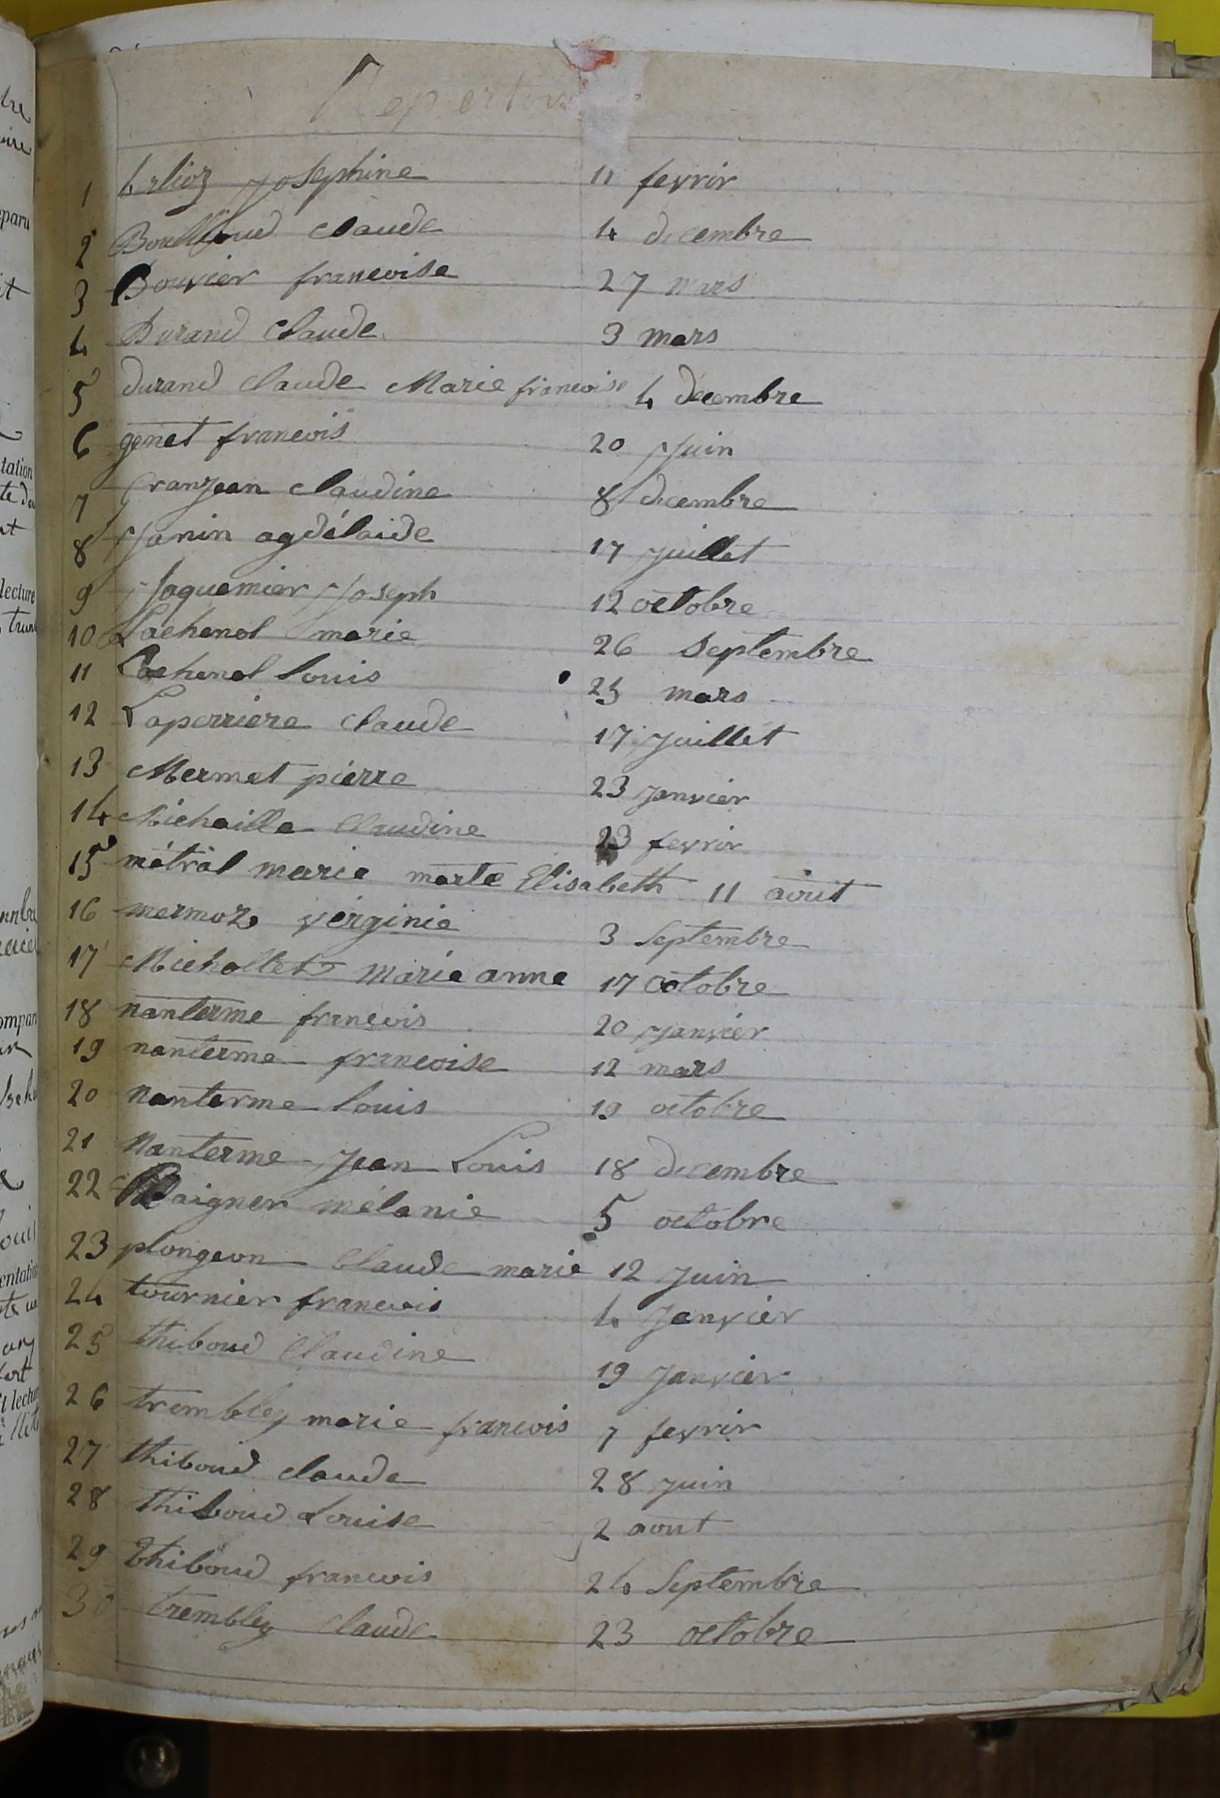 Repertoire
1 brlioz Josephine 11 fevrir
2 Bouilloud claude 4 decembre
3 Bouvier francoise 27 mars
4 Durand Claude 3 mars
5 durand Claude Marie francoise 4 décembre
6 genet francois 20 Juin
7 Granjean claudine 8 decembre
8 Janin agdélaide 17 juillet
9 Jaquemier Joseph 12 octobre
10 Lachenal marie 26 Septembre
11 Lachenal Louis 25 mars
12 Laperriere Claude 17 juillet
13 Mermet pierre 23 janvier
14 Michaille Claudine 23 fevrir
15 métral marie marte Elisabeth 11 août
16 mermoz virginie 3 Septembre
17 Michollet marie anne 17 octobre
18 nanterme francois 20 janvier
19 nanterme francoise 12 mars
20 Nanterme Louis 19 octobre
21 Nanterme Jean Louis 18 decembre
22 mélanie 5 octobre
23 plongeon Claude marie 12 Juin
24 tournier francois 4 Janvier
25 thiboud Claudine 19 Janvier
26 trembley marie francois 7 fevrir
27 thiboud claude 28 juin
28 thiboud Louise 2 aout
29 thiboud francois 24 Septembre
30 trembley Claude 23 octobre